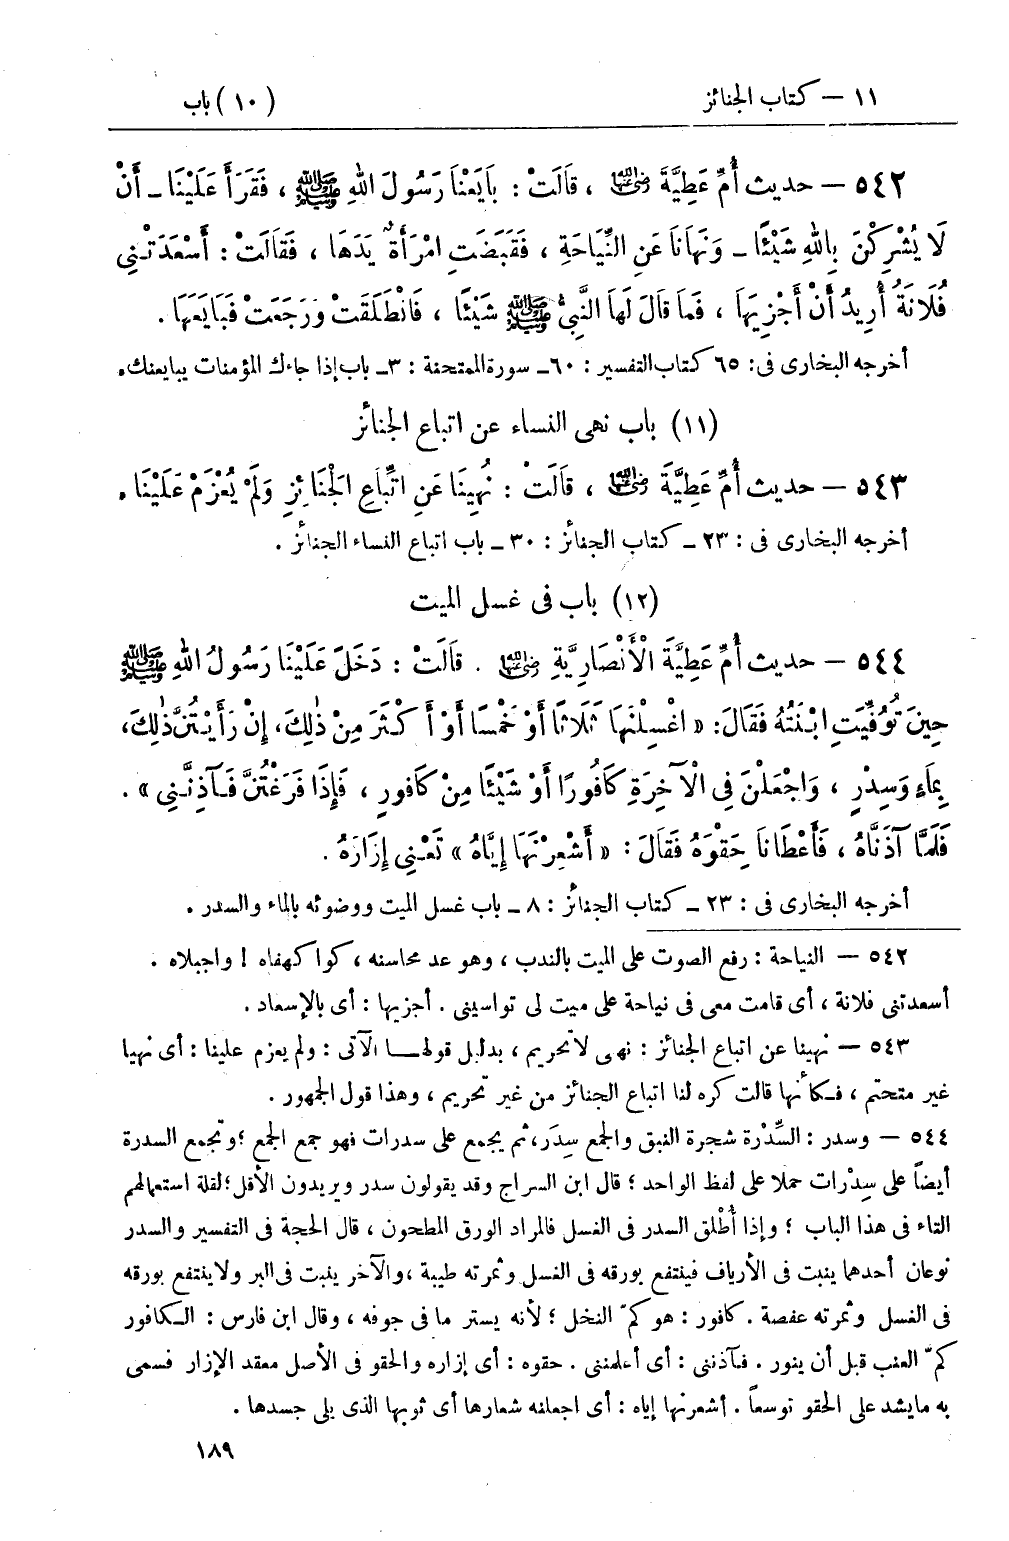 ١١ – كتاب الجنائز
(١٠) باب
٥٤٢ – حديث أُمِّ عَطِيَّةَ رضي الله عنها ، قَالَتْ : بَايَعْنَا رَسُولَ اللهِ ﷺ ، فَقَرَأَ عَلَيْنَا ــ أَنْ
لَا يُشْرِكْنَ بِاللهِ شَيْئًا ــ وَنَهَانَا عَنِ النِّيَاحَةِ ، فَقَبَضَتِ امْرَأَةٌ يَدَهَا ، فَقَالَتْ : أَسْعَدَتْنِي
فُلَانَةُ أُرِيدُ أَنْ أَجْزِيَهَا ، فَمَا قَالَ لَهَا النَّبِيُّ ﷺ شَيْئًا ، فَانْطَلَقَتْ وَرَجَعَتْ فَبَايَعَهَا .
أخرجه البخارى فى : ٦٥ كتاب التفسير : ٦٠ــ سورة الممتحنة : ٣ــ باب إذا جاءك المؤمنات يبايعنك.
(١١) باب نهى النساء عن اتباع الجنائز
٥٤٣ – حديث أُمِّ عَطِيَّةَ رضي الله عنها ، قَالَتْ : نُهِينَا عَنِ اتِّبَاعِ الْجَنَائِزِ وَلَمْ يُعْزَمْ عَلَيْنَا .
أخرجه البخارى فى : ٢٣ ــ كتاب الجنائز : ٣٠ ــ باب اتباع النساء الجنائز .
(١٢) باب فى غسل الميت
٥٤٤ – حديث أُمِّ عَطِيَّةَ الْأَنْصَارِيَّةِ رضي الله عنها . قَالَتْ : دَخَلَ عَلَيْنَا رَسُولُ اللهِ ﷺ
حِينَ تُوُفِّيَتِ ابْنَتُهُ فَقَالَ: « اغْسِلْنَهَا ثَلَاثًا أَوْ خَمْسًا أَوْ أَكْثَرَ مِنْ ذٰلِكَ، إِنْ رَأَيْتُنَّ ذٰلِكَ،
بِمَاءٍ وَسِدْرٍ ، وَاجْعَلْنَ فِي الْآخِرَةِ كَافُورًا أَوْ شَيْئًا مِنْ كَافُورٍ ، فَإِذَا فَرَغْتُنَّ فَآذِنَّنِي » .
فَلَمَّا آذَنَّاهُ ، فَأَعْطَانَا حِقْوَهُ فَقَالَ : « أَشْعِرْنَهَا إِيَّاهُ » تَعْنِي إِزَارَهُ .
أخرجه البخارى فى : ٢٣ ــ كتاب الجنائز : ٨ ــ باب غسل الميت ووضوئه بالماء والسدر .
٥٤٢ – النياحة : رفع الصوت على الميت بالندب ، وهو عد محاسنه ، كواكهفاه ! واجبلاه .
أسعدتنى فلانة ، أى قامت معى فى نياحة على ميت لى تواسينى . أجزيها : أى بالإسعاد .
٥٤٣ – نهينا عن اتباع الجنائز : نهى لا تحريم ، بدليل قولهــا الآتى : ولم يعزم علينا : أى نهيا
غير متحتم ، فكأنها قالت كره لنا اتباع الجنائز من غير تحريم ، وهذا قول الجمهور .
٥٤٤ – وسدر : السِّدْرة شجرة النبق والجمع سِدَر، ثم يجمع على سدرات فهو جمع الجمع ؛ وتجمع السدرة
أيضاً على سِدْرات حملا على لفظ الواحد ؛ قال ابن السراج وقد يقولون سدر ويريدون الأقل؛ لقلة استعمالهم
التاء فى هذا الباب ؛ وإذا أُطْلق السدر فى الغسل فالمراد الورق المطحون ، قال الحجة فى التفسير والسدر
نوعان أحدهما ينبت فى الأرياف فينتفع بورقه فى الغسل وثمرته طيبة ، والآخر ينبت فى البر ولا ينتفع بورقه
فى الغسل وثمرته عفصة . كافور : هو كمّ النخل ؛ لأنه يستر ما فى جوفه ، وقال ابن فارس : الكافور
كمّ العنب قبل أن ينور . فآذننى : أى أعلمننى . حقوه : أى إزاره والحقو فى الأصل معقد الإزار فسمى
به ما يشد على الحقو توسعاً . أشعرنها إياه : أى اجعلنه شعارها أى ثوبها الذى يلى جسدها .
١٨٩